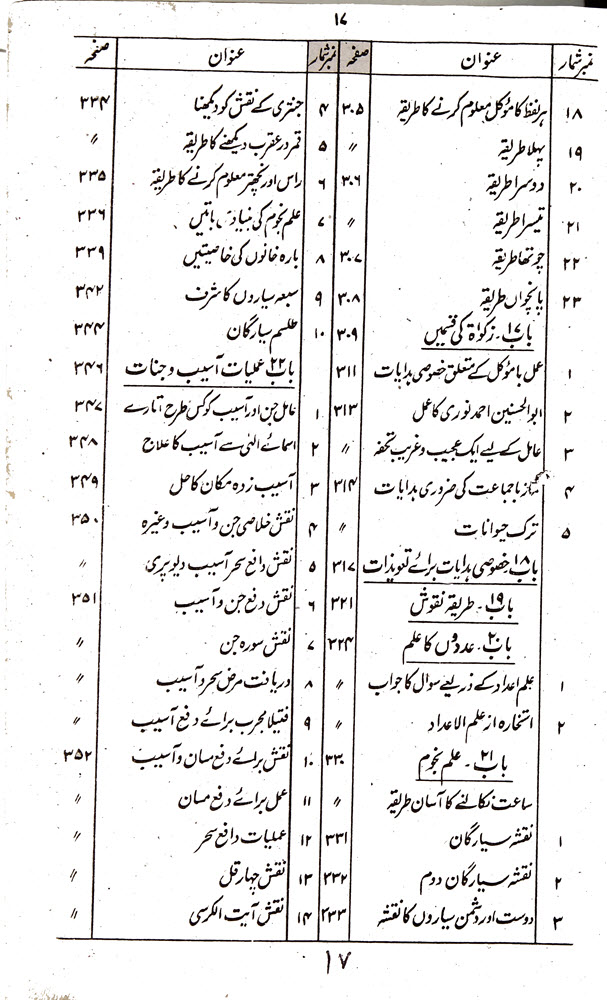 ۱۷
نمبر شمار عنوان صفحہ
۱۸ ہر لفظ کا مؤکل معلوم کرنے کا طریقہ ۳۰۵
۱۹ پہلا طریقہ 〃
۲۰ دوسرا طریقہ ۳۰۶
۲۱ تیسرا طریقہ 〃
۲۲ چوتھا طریقہ ۳۰۷
۲۳ پانچواں طریقہ ۳۰۸
باب ۱۷۔ زکوٰۃ کی قسمیں ۳۰۹
۱ عمل با مؤکل کے متعلق خصوصی ہدایات ۳۱۱
۲ ابوالحسنین احمد نوری کا عمل ۳۱۳
۳ عامل کے لیے ایک عجیب و غریب تحفہ 〃
۴ نماز با جماعت کی ضروری ہدایات ۳۱۴
۵ ترک حیوانات 〃
باب ۱۸۔ خصوصی ہدایات برائے تعویذات ۳۱۷
باب ۱۹۔ طریقہ نقوش ۳۲۱
باب ۲۰۔ عددوں کا علم ۳۲۴
۱ علم اعداد کے ذریعے سوال کا جواب 〃
۲ استخارہ از علم الاعداد 〃
باب ۲۱۔ علم نجوم ۳۳۰
ساعت نکالنے کا آسان طریقہ 〃
۱ نقشہ سیارگان ۳۳۱
۲ نقشہ سیارگان دوم ۲۳۲
۳ دوست اور دشمن سیاروں کا نقشہ ۲۳۳
نمبر شمار عنوان صفحہ
۴ جنتری کے نقش کو دیکھنا ۲۳۴
۵ قمر در عقرب دیکھنے کا طریقہ 〃
۶ راس اور نچھتر معلوم کرنے کا طریقہ ۲۳۵
۷ علم نجوم کی بنیادی باتیں ۲۳۶
۸ بارہ خانوں کی خاصیتیں ۲۳۹
۹ سبعہ سیاروں کا شرف ۳۴۲
۱۰ طلسم سیارگان ۳۴۴
باب ۲۲ عملیات آسیب و جنات ۳۴۶
۱ عامل جن اور آسیب کو کس طرح اتارے ۳۴۷
۲ اسمائے الٰہی سے آسیب کا علاج ۳۴۸
۳ آسیب زدہ مکان کا حل ۳۴۹
۴ نقش خلاصی جن و آسیب وغیرہ ۳۵۰
۵ نقش دافع سحر آسیب دیو پری 〃
۶ نقش دفع جن و آسیب ۳۵۱
۷ نقش سورہ جن 〃
۸ دریافت مرض سحر و آسیب 〃
۹ فتیلا مجرب برائے دفع آسیب 〃
۱۰ نقش برائے دفع مسان و آسیب ۳۵۲
۱۱ عمل برائے دفع مسان 〃
۱۲ عملیات دافع سحر 〃
۱۳ نقش چہار قل 〃
۱۴ نقش آیت الکرسی 〃
۱۷